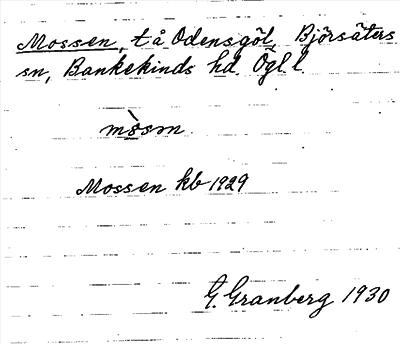 Mossen, t å Odensgöl, Björsäters
sn, Bankekinds hd Ögl. l.
mòsən
Mossen kb 1929
G. Granberg 1930